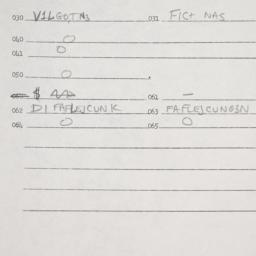 030 V1LGOTNS 031 FICT NAS
040 O
041 O
050 O
$ 061 —
062 DI FAFLEJCUNK 063 FAFLEJCUNO3N
064 O 065 O